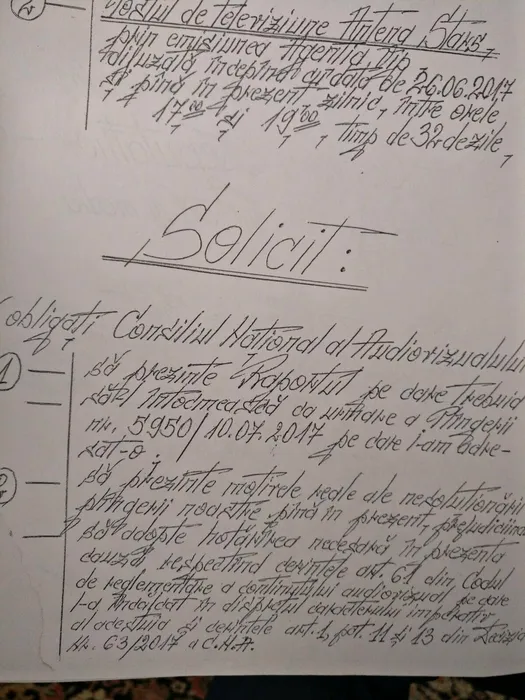 2 postul de televiziune Antena Stars,
prin emisiunea Agenția VIP
difuzată începînd cu data de 26.06.2017
și pînă în prezent, zilnic, între orele
17⁰⁰ și 19⁰⁰, timp de 32 de zile,
Solicit:
obligați Consiliul Național al Audiovizualului
1 să prezinte Raportul pe care trebuia
să-l întocmească ca urmare a Plîngerii
nr. 5950/10.07.2017 pe care i-am adre-
sat-o.
2 să prezinte motivele reale ale nesoluționării
plîngerii noastre pînă în prezent, prejudiciind
să adopte hotărîrea necesară în prezenta
cauză, respectînd cerințele art. 61 din Codul
de reglementare a conținutului audiovizual pe care
l-a încălcat în disprețul caracterului imperativ
al acestuia și cerințele art. 1, pct. 11 și 13 din Decizia
Nr. 63/2017 a C.N.A.